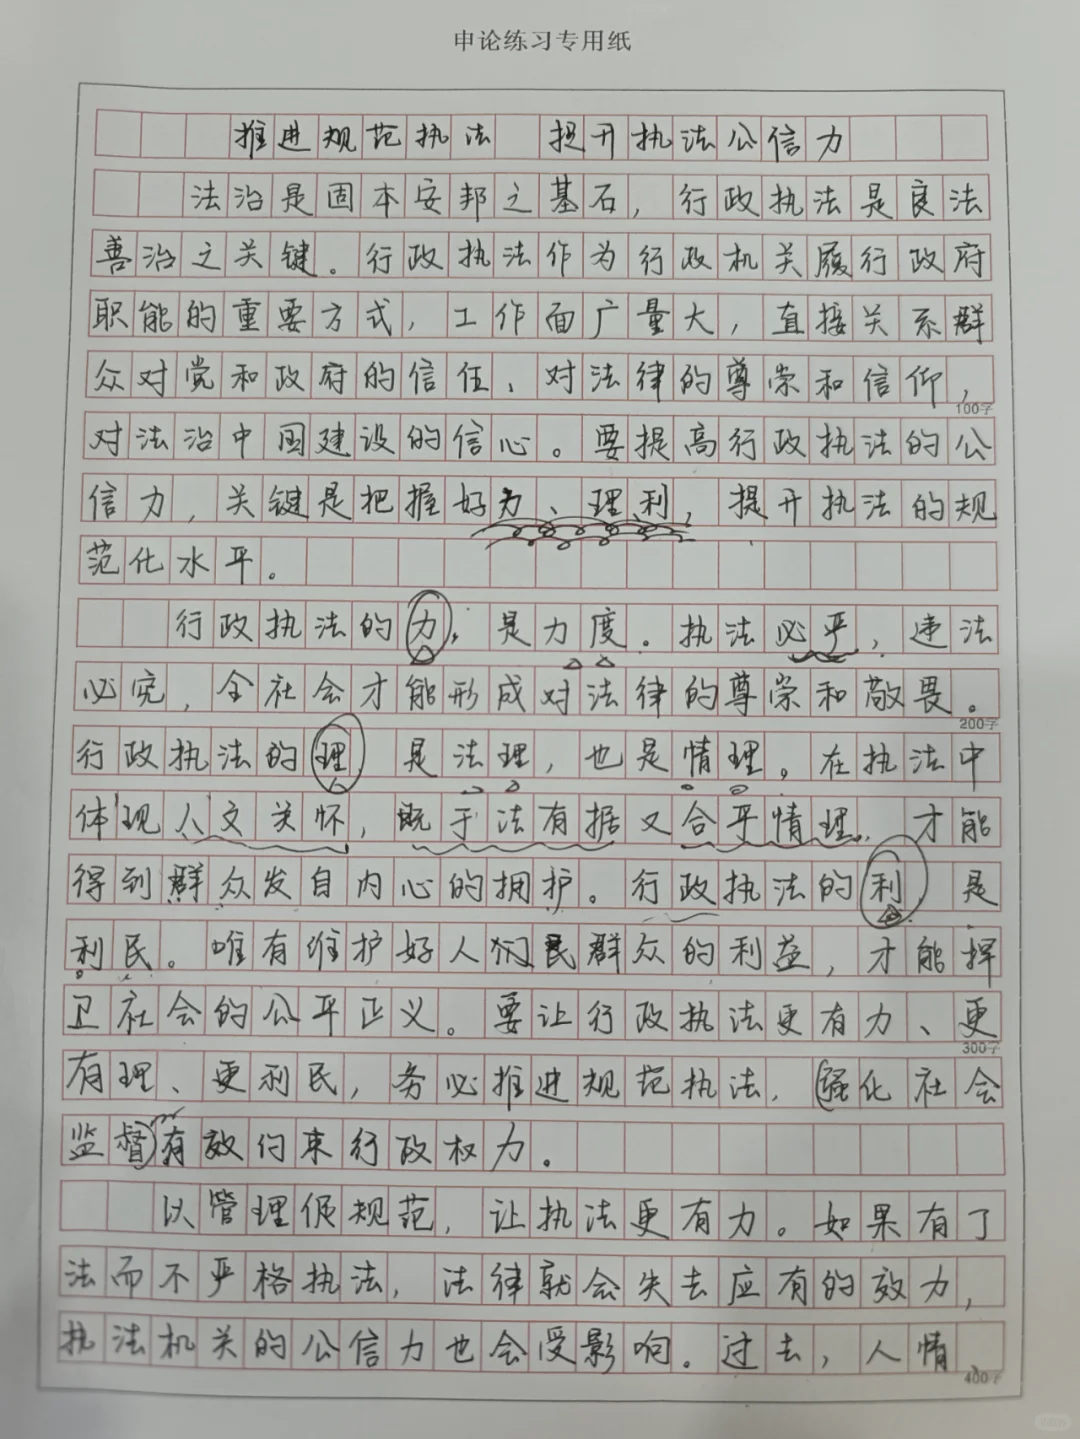 申论练习专用纸
推进规范执法 提升执法公信力
法治是固本安邦之基石，行政执法是良法
善治之关键。行政执法作为行政机关履行政府
职能的重要方式，工作面广量大，直接关系群
众对党和政府的信任、对法律的尊崇和信仰，
100字
对法治中国建设的信心。要提高行政执法的公
信力，关键是把握好力、理利，提升执法的规
范化水平。
行政执法的力，是力度。执法必严，违法
必究，全社会才能形成对法律的尊崇和敬畏。
200字
行政执法的理 是法理，也是情理。在执法中
体现人文关怀，既于法有据又合乎情理，才能
得到群众发自内心的拥护。行政执法的利，是
利民。唯有维护好人们民群众的利益，才能捍
卫社会的公平正义。要让行政执法更有力、更
300字
有理、更利民，务必推进规范执法，强化社会
监督有效约束行政权力。
以管理促规范，让执法更有力。如果有了
法而不严格执法，法律就会失去应有的效力，
执法机关的公信力也会受影响。过去，人情、
400字